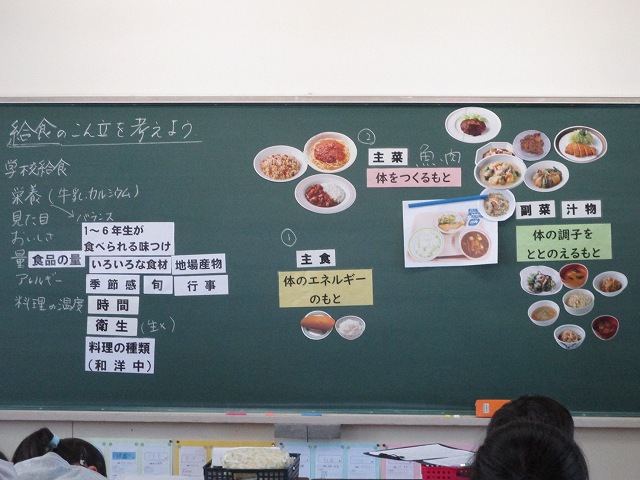 給食のこん立を考えよう
学校給食
栄養(牛乳.カルシウム)
バランス
見た目
おいしさ
量
食品の量
アレルギー
料理の温度
1~6年生が
食べられる味つけ
いろいろな食材
地場産物
季節感
旬
行事
時間
衛生
(生×)
料理の種類
(和洋中)
②
主菜
魚.肉
体をつくるもと
①
主食
体のエネルギー
のもと
副菜
汁物
体の調子を
ととのえるもと